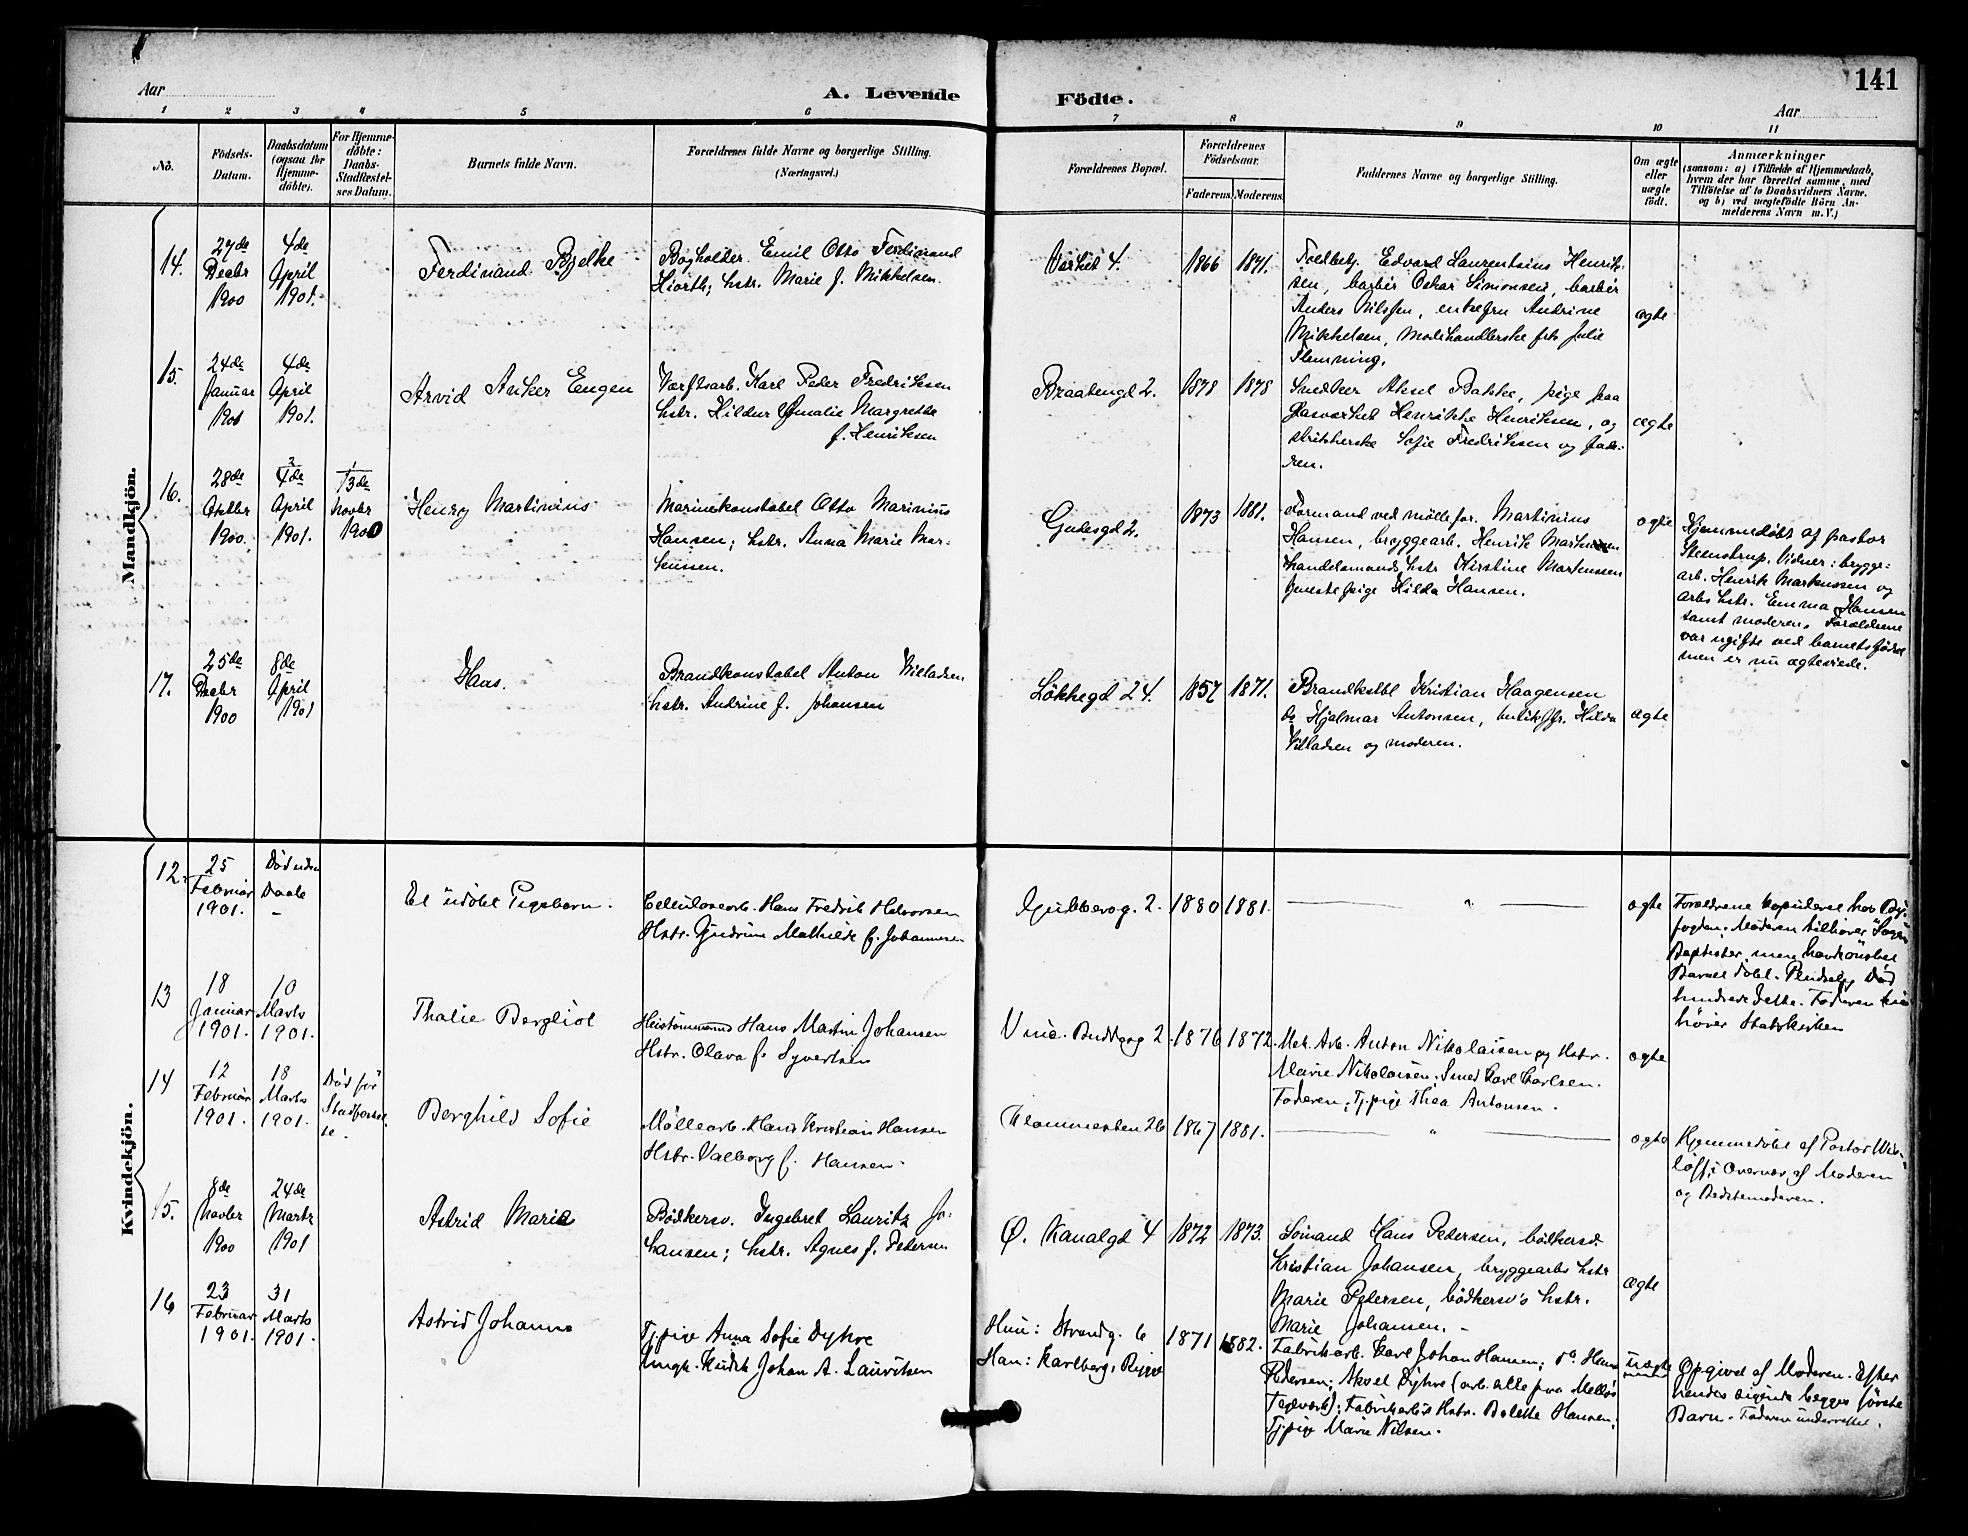 141
Aar
A. Levende Födte.
Aar
1 2 3 4 5 6 7 8 9 10 11
No.
Födsels-
Datum.
Daabsdatum
(ogsaa for
Hjemme-
döbte).
For Hjemme-
döbte:
Daabs-
Stadfæstel-
ses Datum.
Barnets fulde Navn.
Forældrenes fulde Navne og borgerlige Stilling.
(Næringsvei.)
Forældrenes Bopæl.
Forældrenes
Födselsaar.
Faderens. Moderens.
Faddernes Navne og borgerlige Stilling.
Om ægte
eller
uægte
født.
Anmærkninger
(saasom: a) i Tilfælde af Hjemmedaab,
hvem der har forrettet samme, med
Tilföielse af to Daabsvidners Navne.
og b) ved uægtefödte Börn An-
melderens Navn m. V.)
Mandkjön.
14.
27de
Decbr
1900
4de
April
1901.
Ferdinand Bjelke
Bogholder Emil Otto Ferdinand
Hiorth; hstr. Marie f. Mikkelsen.
Værket 4.
1866 1871.
Toldbetj. Edvard Laurentsius Henrik-
sen, barbér Oskar Simonsen, barbér
Anders Nilssen, enkefru Andrine
Mikkelsen, modehandlerske frk Julie
Flemming.
ægte
15.
24de
Januar
1901
4de
April
1901.
Arvid Anker Engen
Værftsarb. Karl Peder Fredriksen
hstr. Hildur Amalie Margrethe
f. Henriksen
Braatengd 2.
1878 1878
Snedker Aksel Bakke, pige paa
Gasværket Henrikke Henriksen, og
strikkerske Sofie Fredriksen og fade-
ren.
ægte
16.
28de
Oktbr
1900.
4de
April
1901.
13de
Novbr
1900
Henry Martinius
Marinekonstabel Otto Marinius
Hansen; hstr. Anna Marie Mar-
kussen.
Gudesgd 2.
1873 1881.
Formand ved mølle for. Martinius
Hansen, bryggearb. Henrik Markussen
handelsmands hstr Kirstine Martenssen
tjenestepige Hilda Hansen.
ægte
Hjemmedøbt af pastor
Steenstrup. Vidner: brygge-
arb. Henrik Markussen og
arbs hstr. Emma Hansen
samt moderen. Forældrene
var ugifte ved barnets fødsel
men er nu ægteviede.
17.
25de
Decbr
1900
8de
April
1901
Haas.
Brandkonstabel Anton Villadsen
hstr. Andrine f. Johansen
Løkkegd 24.
1857 1871.
Brandkstbl Kristian Haagensen
do Hjalmar Antonsen, butikfr. Hilda
Villadsen og moderen.
ægte
Kvindekjön.
12.
25
Februar
1901.
Død uden
Daab
–
Et udöbt Pigebarn.
Cellulosearb. Hans Fredrik Halvorsen
Hstr. Gudrun Mathilde f. Johannesen
Guldbergg. 2.
1880 1881.
"
ægte
Forældrene kopuleret hos By-
fogden. Moderen tilhører
Baptister, men havde önsket
Barnet døbt. Pludselig Død
hindrede dette. Faderen til-
hører Statskirken
13
18
Januar
1901.
10
Marts
1901.
Thalie Bergliot
Hans Martin Johansen
Hstr. Olava f. Syvertsen
1876 1872.
Mek. Arb. Anton Nikolaisen og Hstr.
Marie Nikolaisen; Smed Carl Carlsen.
Faderen; Tj.pige Thea Antonsen.
ægte
14
12
Februar
1901.
18
Marts
1901.
Død før
Stadfæstel-
se.
Berghild Sofie
Møllearb. Hans Kristian Hansen
Hstr. Valborg f. Hansen.
Glommesten 26
1867 1881.
"
ægte
Hjemmedøbt af Pastor Wis-
löff i Overvær af Moderen
og Bedstemoderen.
15.
8de
Novbr
1900
24de
Marts
1901
Astrid Marie
Bødkersv. Ingebret Lauritz Jo-
hansen; hstr. Agnes f. Pedersen
Ø. Kanalgd 4
1872 1873.
Sømand Hans Pedersen, bødkersv.
Kristian Johansen, bryggearbs hstr
Marie Petersen, bødkersv's hstr.
Marie Johansen. –
ægte
16
23
Februar
1901.
31
Marts
1901.
Astrid Johanne
Tj.pige Anna Sofie Dyhre
Ungk. Kudsk Johan A. Lauritsen
Hun: Strandg. 6
Han: Karlberg, Rygge
1871 1882.
Fabrikarb. Carl Johan Hansen; do Hans
Pedersen; Aksel Dyhre (arb. alle paa Melløs
Teglværk); Fabrikarb's Hstr. Bolette Hansen;
Tj.pige Marie Nilsen.
uægte
Opgivet af Moderen. Efter
hendes sigende begges første
Barn. Faderen underrettet.